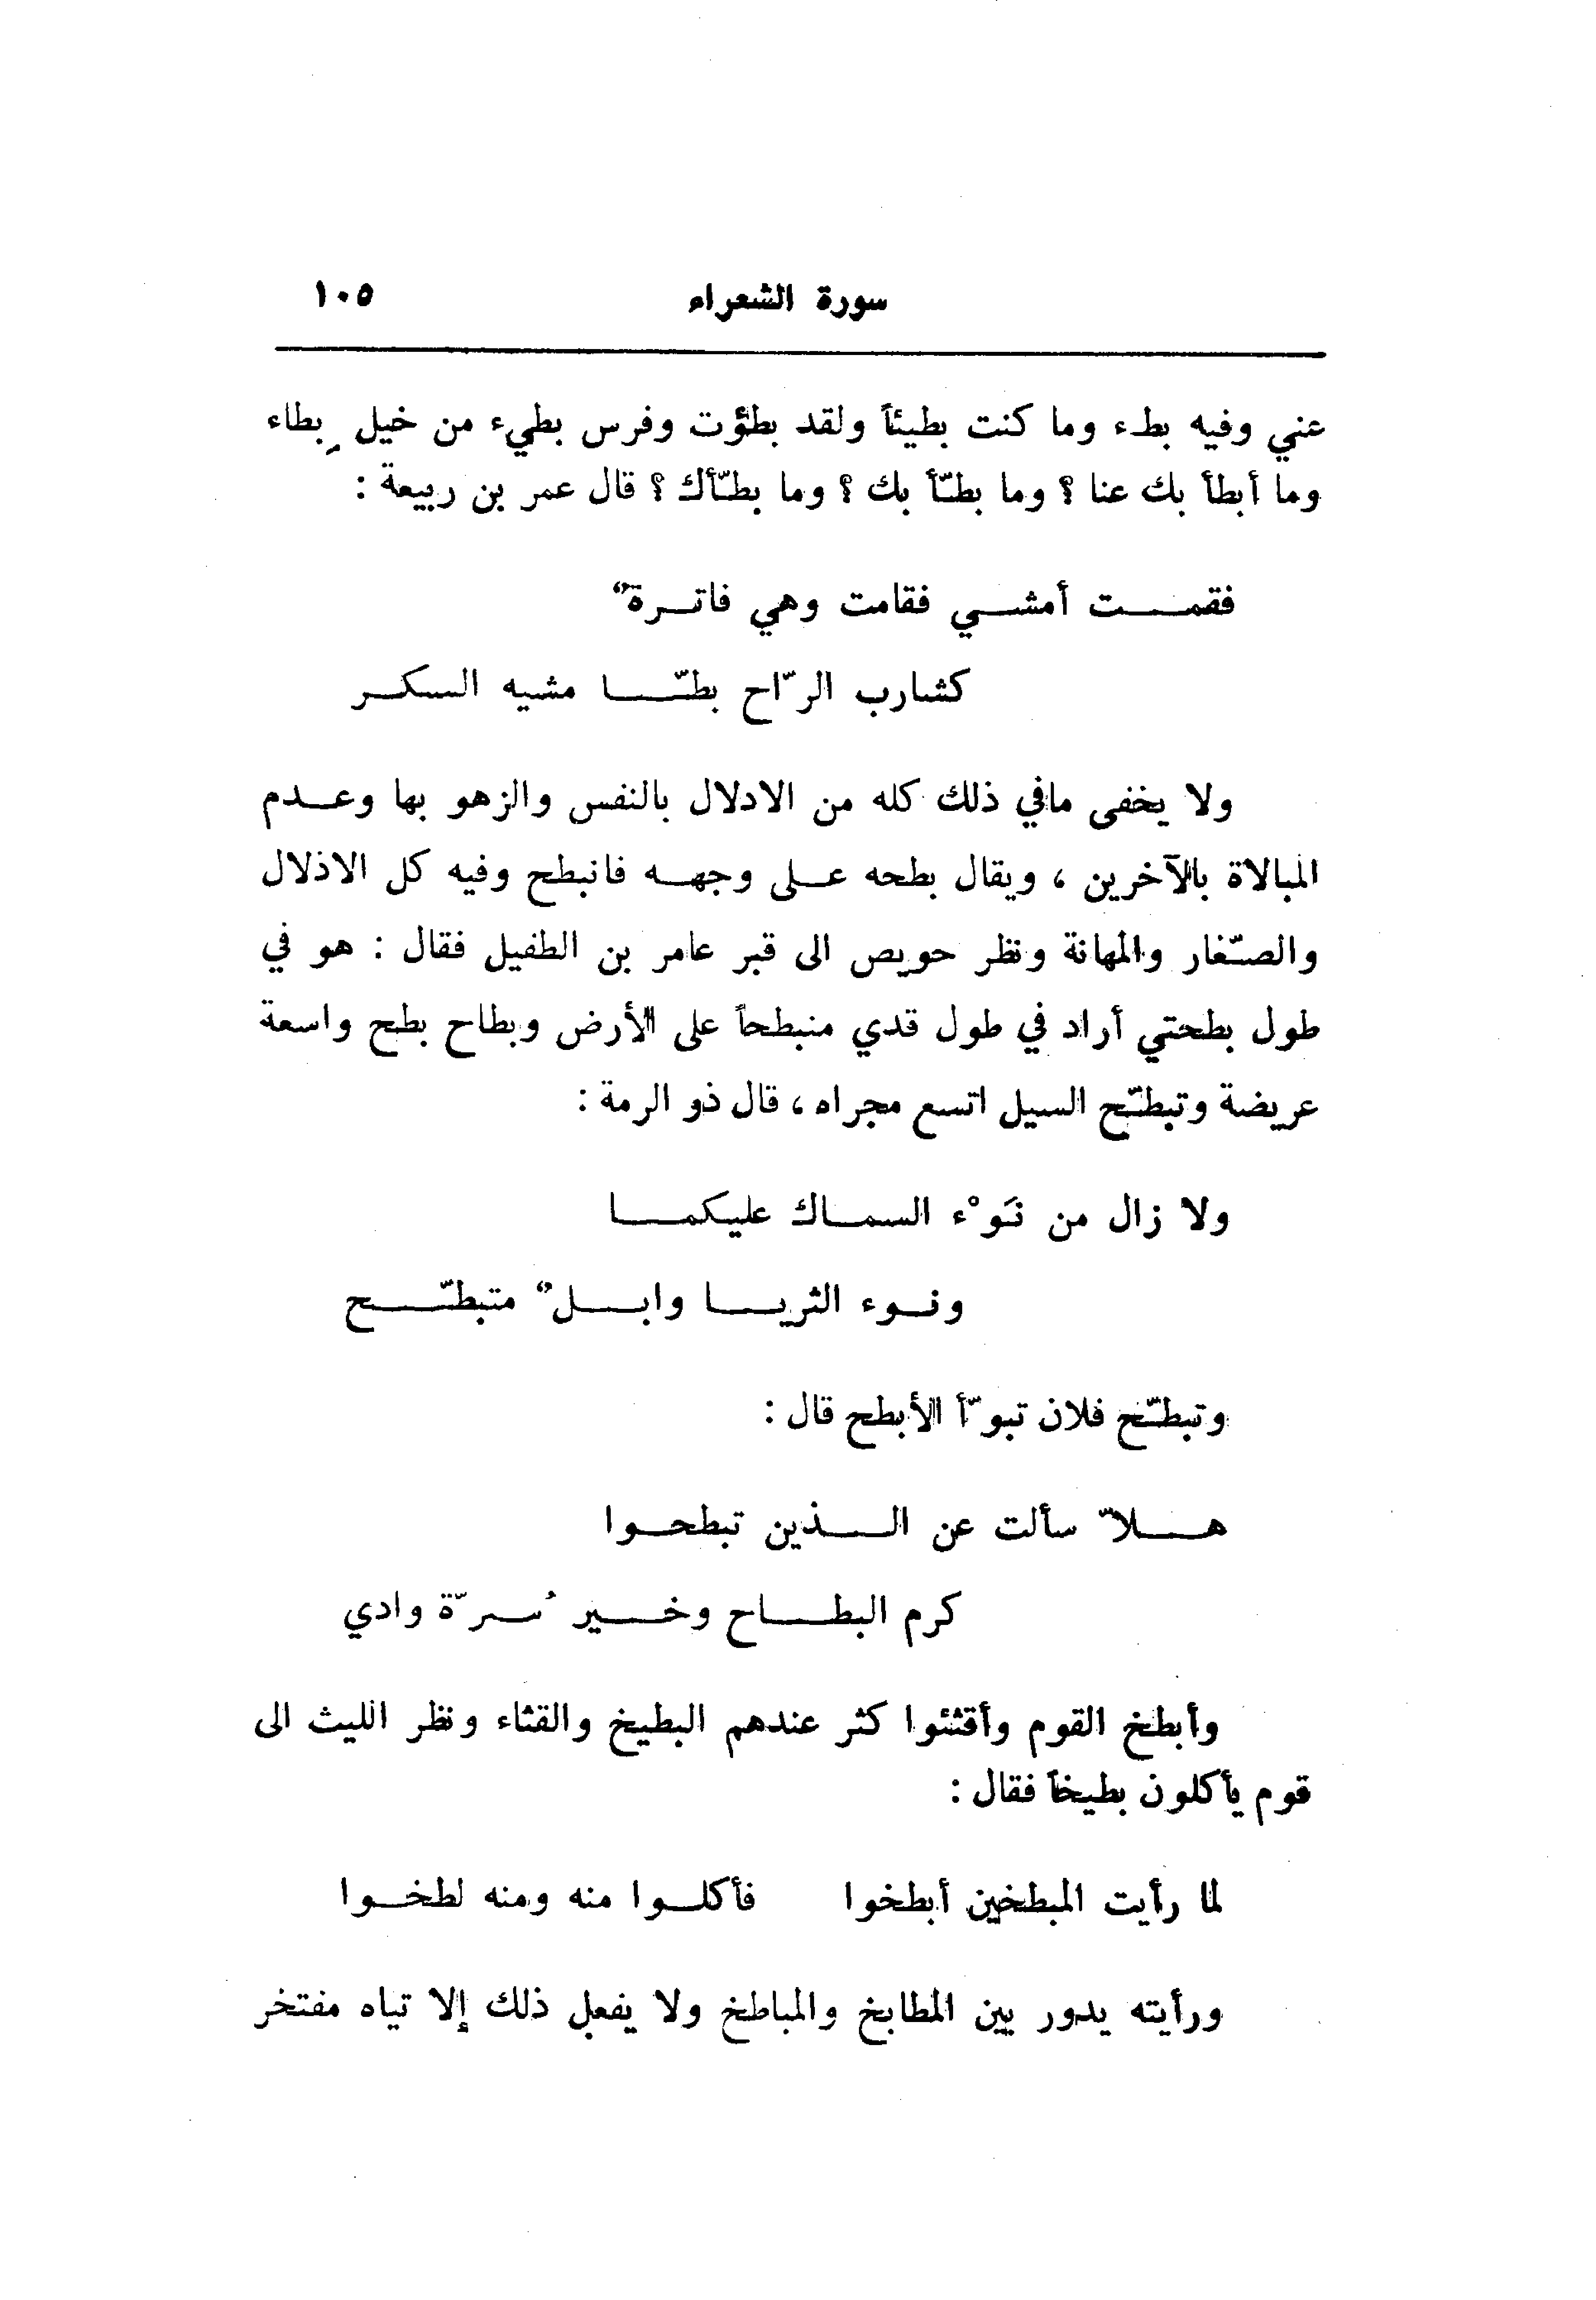 سورة الشعراء ١٠٥
عني وفيه بطء وما كنت بطيئاً ولقد بطؤت وفرس بطيء من خيل بِطاء
وما أبطأ بك عنا ؟ وما بطّأ بك ؟ وما بطّأك ؟ قال عمر بن ربيعة :
فقمت أمشي فقامت وهي فاترةٌ
كشارب الرّاح بطّا مشيه السكر
ولا يخفى مافي ذلك كله من الادلال بالنفس والزهو بها وعدم
المبالاة بالآخرين ، ويقال بطحه على وجهه فانبطح وفيه كل الاذلال
والصّغار والمهانة ونظر حويص الى قبر عامر بن الطفيل فقال : هو في
طول بطحتي أراد في طول قدي منبطحاً على الأرض وبطاح بطح واسعة
عريضة وتبطّح السيل اتسع مجراه ، قال ذو الرمة :
ولا زال من نَوْء السماك عليكما
ونوء الثريا وابلٌ متبطّح
وتبطّح فلان تبوّأ الأبطح قال :
هلاّ سألت عن الذين تبطحوا
كرم البطاح وخير سُرّة وادي
وأبطخ القوم وأقثئوا كثر عندهم البطيخ والقثاء ونظر الليث الى
قوم يأكلون بطيخاً فقال :
لما رأيت المبطخين أبطخوا فأكلوا منه ومنه لطخوا
ورأيته يدور بين المطابخ والمباطخ ولا يفعل ذلك إلا تياه مفتخر